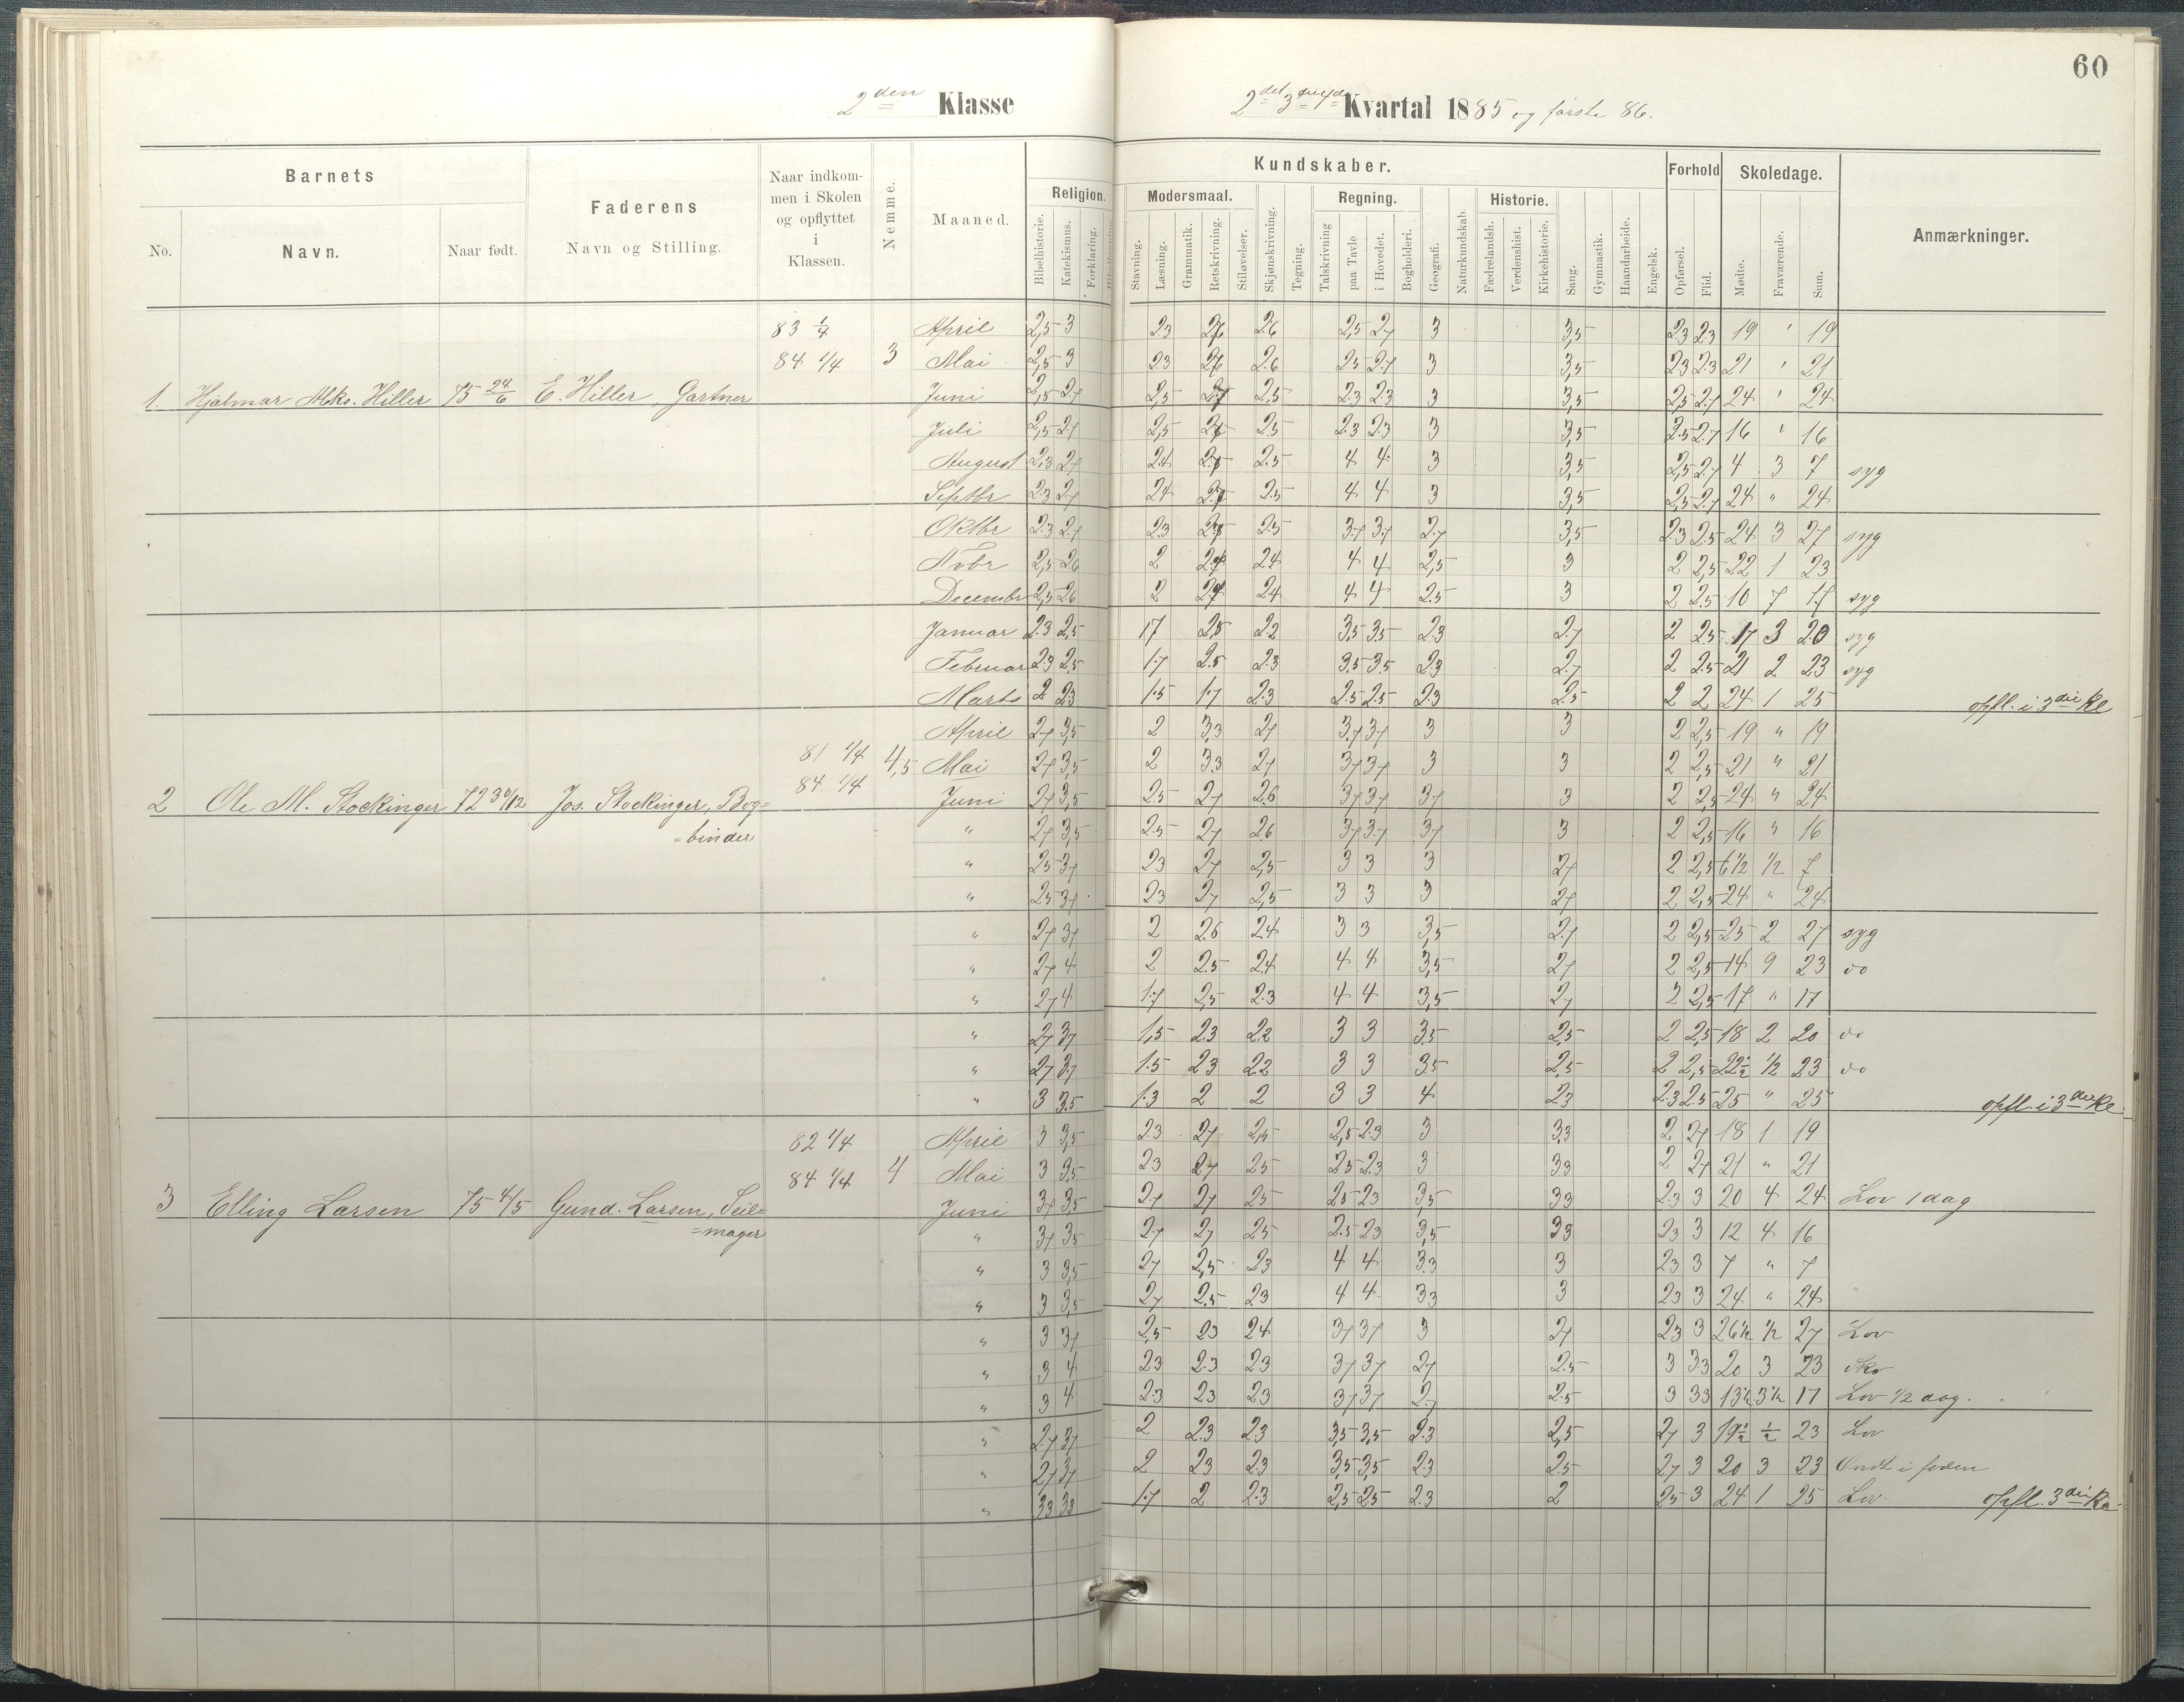 60
2den Klasse
2det 3die 4de Kvartal 1885 og første 86.
Barnets
Faderens
Naar indkommen i Skolen og opflyttet i Klassen.
Nemme.
Maaned.
Religion.
Kundskaber.
Forhold
Skoledage.
Anmærkninger.
No.
Navn.
Naar født.
Navn og Stilling.
Bibelhistorie.
Katekismus.
Forklaring.
Modersmaal.
Stavning.
Læsning.
Grammatik.
Retskrivning.
Stiløvelser.
Skjønskrivning.
Tegning.
Regning.
Talskrivning
paa Tavle
i Hovedet.
Bogholderi.
Geografi.
Naturkundskab.
Historie.
Fædrelandsh.
Verdenshist.
Kirkehistorie.
Sang.
Gymnastik.
Haandarbeide.
Engelsk.
Opførsel.
Flid.
Mødte.
Fraværende.
Sum.
83 1/4
84 1/4 3
1. Hjalmar Mks. Hiller 75 24/6 E. Hiller, Gartner
April 2,5 3 2.3 2.6 2.6 2,5 2.7 3 3,5 2.3 2.3 19 " 19
Mai 2,5 3 2.3 2.6 2.6 2.5 2.7 3 3,5 2.3 2.3 21 " 21
Juni 2,5 2.7 2,5 2.7 2,5 2.3 2.3 3 3,5 2,5 2.7 24 " 24
Juli 2,5 2.7 2,5 2.7 2.5 2.3 2.3 3 3,5 2.5 2.7 16 " 16
August 2.3 2.7 2.4 2.7 2.5 4 4 3 3,5 2,5 2.7 4 3 7 syg
Septbr 2.3 2.7 2.4 2.7 2.5 4 4 3 3,5 2,5 2.7 24 " 24
Oktbr 2.3 2.7 2.3 2.7 2.5 3.7 3.7 2.7 3,5 2.3 2.5 24 3 27 syg
Novbr 2,5 2.6 2 2.7 2.4 4 4 2,5 3 2 2,5 22 1 23
Decembr 2,5 2.6 2 2.7 2.4 4 4 2.5 3 2 2.5 10 7 17 syg
Januar 2.3 2,5 1.7 2.5 2.2 3.5 3.5 2.3 2.7 2 2.5 17 3 20 syg
Februar 2.3 2,5 1.7 2.5 2.3 3.5 3.5 2.3 2.7 2 2.5 21 2 23 syg
Marts 2 2.3 1.5 1.7 2.3 2.5 2.5 2.3 2.5 2 2 24 1 25 opfl. i 3die Kl
81 1/4
84 1/4 4,5
2 Ole M. Stockinger 72 30/12 Jos. Stockinger, Bog=
=binder
April 2.7 3,5 2 3.3 2.7 3.7 3.7 3 3 2 2,5 19 " 19
Mai 2.7 3,5 2 3.3 2.7 3.7 3.7 3 3 2 2,5 21 " 21
Juni 2.7 3,5 2.5 2.7 2.6 3.7 3.7 3.7 3 2 2,5 24 " 24
" 2.7 3,5 2.5 2.7 2.6 3.7 3.7 3.7 3 2 2,5 16 " 16
" 2.5 3.7 2.3 2.7 2,5 3 3 3 2.7 2 2,5 6 1/2 1/2 7
" 2.5 3.7 2.3 2.7 2,5 3 3 3 2.7 2 2,5 24 " 24
" 2.7 3.7 2 2.6 2.4 3 3 3,5 2.7 2 2,5 25 2 27 syg
" 2.7 4 2 2.5 2.4 4 4 3,5 2.7 2 2,5 14 9 23 do
" 2.7 4 1.7 2,5 2.3 4 4 3,5 2.7 2 2,5 17 " 17
" 2.7 3.7 1,5 2.3 2.2 3 3 3.5 2,5 2 2,5 18 2 20 do
" 2.7 3.7 1.5 2.3 2.2 3 3 3.5 2,5 2 2,5 22 1/2 1/2 23 do
" 3 3.5 1.3 2 2 3 3 4 2.3 2.3 2.5 25 " 25 opfl. i 3die Kl
82 1/4
84 1/4 4
3 Elling Larsen 75 4/5 Gund. Larsen, Seil=
=mager
April 3 3,5 2.3 2.7 2,5 2,5 2.3 3 3.3 2 2.7 18 1 19
Mai 3 3.5 2.3 2.7 2.5 2.5 2.3 3 3.3 2 2.7 21 " 21
Juni 3.7 3.5 2.7 2.7 2.5 2.5 2.3 3,5 3.3 2.3 3 20 4 24 Lov 1 dag
" 3.7 3.5 2.7 2.7 2.5 2.5 2.3 3,5 3.3 2.3 3 12 4 16
" 3 3,5 2.7 2,5 2.3 4 4 3.3 3 2.3 3 7 " 7
" 3 3,5 2.7 2.5 2.3 4 4 3.3 3 2.3 3 24 " 24
" 3 3.7 2,5 2.3 2.4 3.7 3.7 3 2.7 2.3 3 26 1/2 1/2 27 Lov
" 3 4 2.3 2.3 2.3 3.7 3.7 2.7 2.5 3 3.3 20 3 23 Sko
" 3 4 2.3 2.3 2.3 3.7 3.7 2.7 2.5 3 3.3 13 1/2 3 1/2 17 Lov 1/2 dag.
" 2.7 3.7 2 2.3 2.3 3,5 3,5 2.3 2,5 2.7 3 19 1/2 1/2 23 Lov
" 2.7 3.7 2 2.3 2.3 3,5 3,5 2.3 2.5 2.7 3 20 3 23 Ondt i foden
" 3.3 3.3 1.7 2 2.3 2,5 2.5 2.3 2 2.5 3 24 1 25 Lov. opfl. 3die Kl.